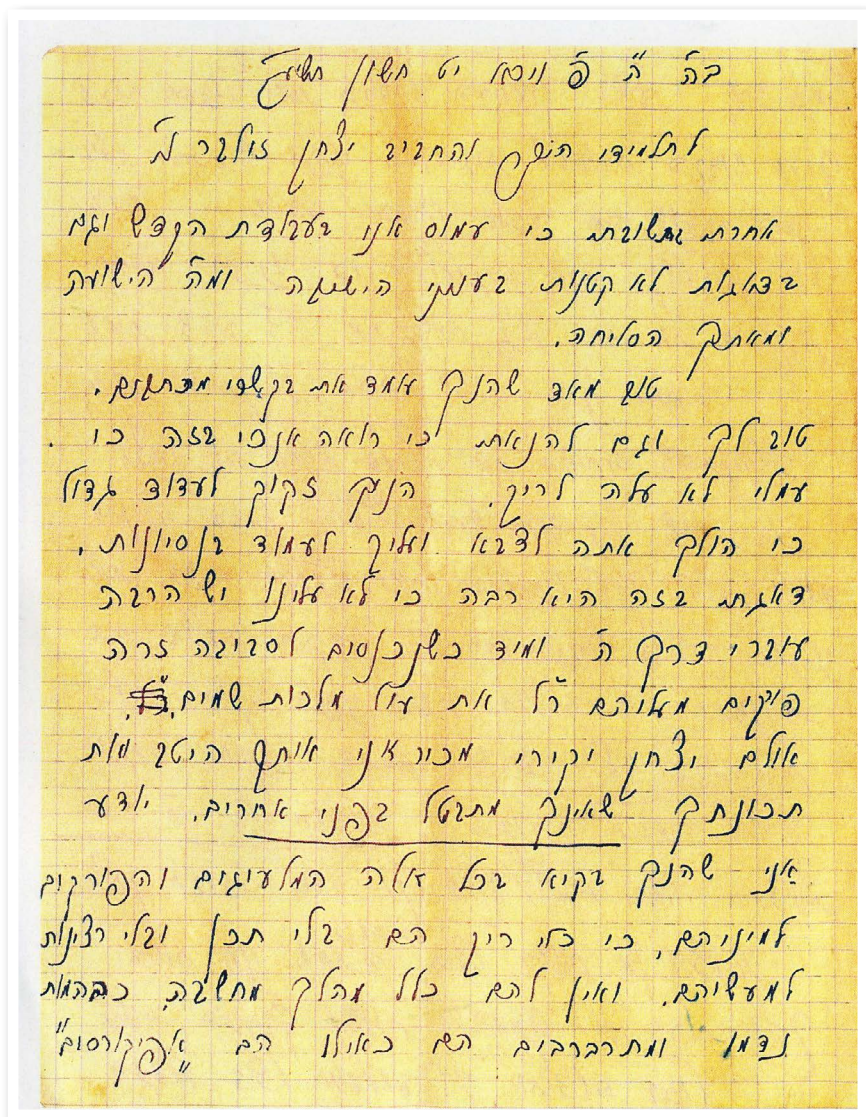 בה" ה' פ' וירא יט חשון תשי"ג
לתלמידי היקר והחביב יצחק זילבר נ"י
אחרת תשובתי כי עמוס אני בעבודת הקדש וגם
בדאגות לא קטנות בעניני הישיבה ומה' הישועה
ומאתך הסליחה.
טוב מאד שהנך עומד את בקשרי מכתבים.
טוב לך וגם להנאתי כי רואה אנכי בזה כי
עמלי לא עלה לריק. הנך זקוק לעדוד גדול
כי הולך אתה לצבא ועליך לעמוד בנסיונות.
דאגתי בזה היא רבה כי לא עלינו יש הרבה
עוברי דרך ה' ומיד כשנכנסים לסביבה זרה
פורקים מעליהם ר"ל את עול מלכות שמים.
אולם יצחק יקירי מכיר אני אותך היטב ואת
תכונתך שאינך מתבטל בפני אחרים. יודע
אני שהנך בקיא בכל אלה המלעיגים והפורקים
למיניהם, כי כלי ריק הם בלי תכן ובלי רצינות
למעשיהם. ואין להם כלל מהלך מחשבה, כבהמות
נדמו ומתרברבים הם כאילו הם "אפיקורסים"